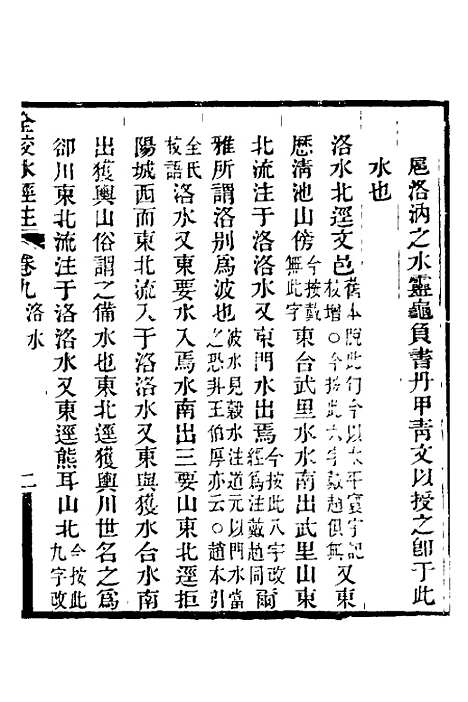 扈洛汭之水靈龜負書丹甲靑文以授之卽于此
水也
洛水北逕文邑舊本脫此行今以太平寰宇記校增○今按此六字戴趙俱無又東
歷淸池山傍今按戴無此字東合武里水水南出武里山東
北流注于洛洛水又東門水出焉今按此八字改經爲注戴趙同爾
雅所謂洛別爲波也波水見穀水注道元以門水當之恐非王伯厚亦云○趙本引
全氏校語洛水又東要水入焉水南出三要山東北逕拒
陽城西而東北流入于洛洛水又東與獲水合水南
出獲輿山俗謂之備水也東北逕獲輿川世名之爲
卻川東北流注于洛洛水又東逕熊耳山北今按此九字改
全校水經注
卷九 洛水
二